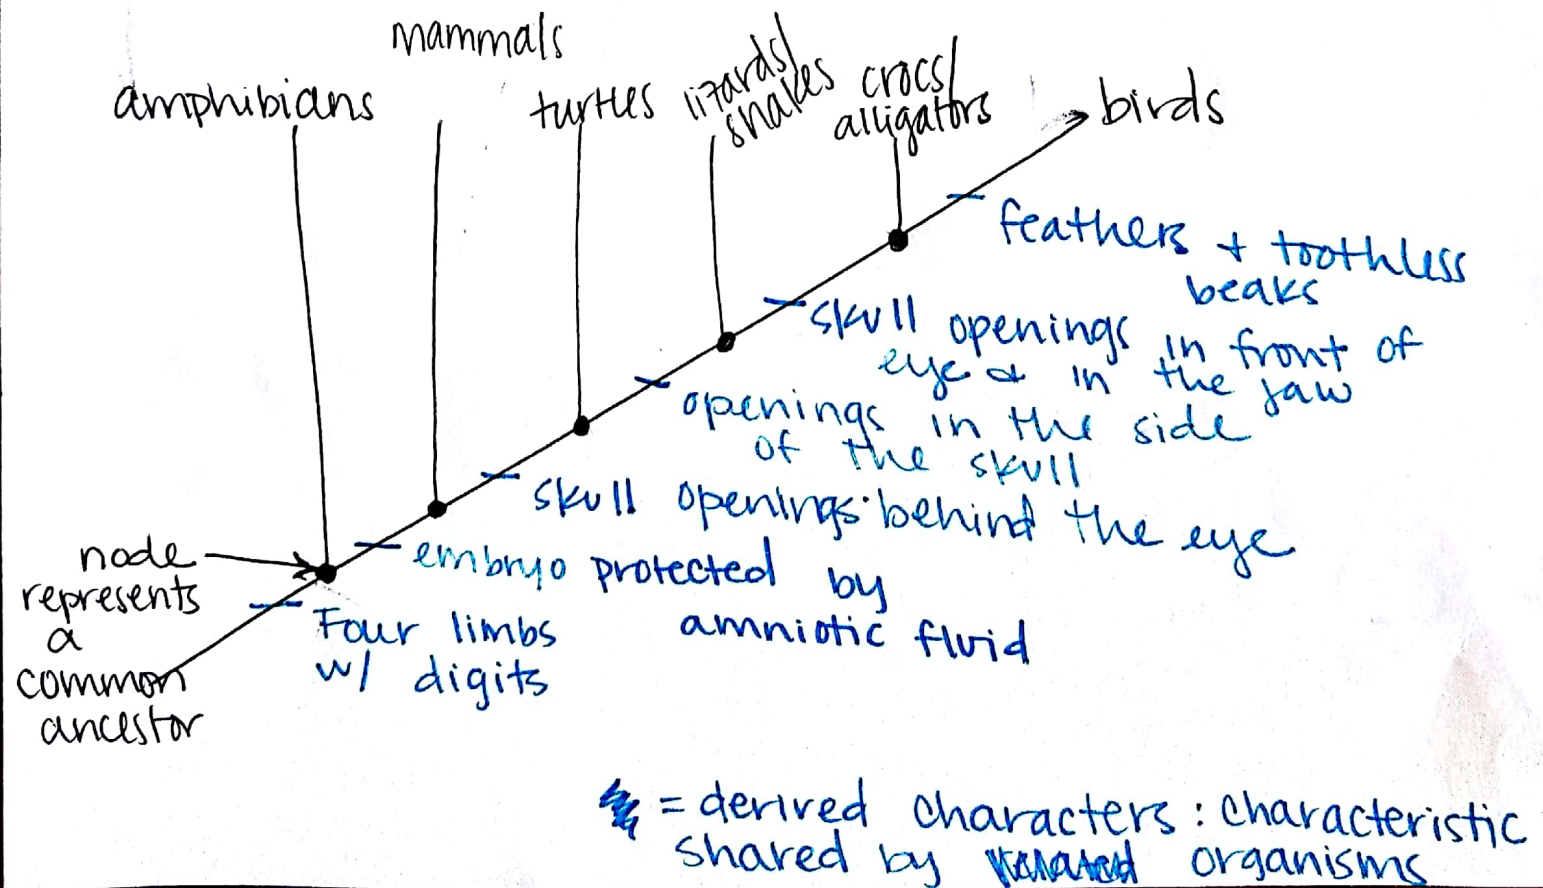 mammals
amphibians
turtles
lizards/
snakes
crocs/
alligators
birds
feathers + toothless
beaks
skull openings in front of
eye & in the jaw
openings in the side
of the skull
skull openings behind the eye
embryo protected by
amniotic fluid
Four limbs
w/ digits
node
represents
a
common
ancestor
= derived characters: characteristic
shared by related organisms